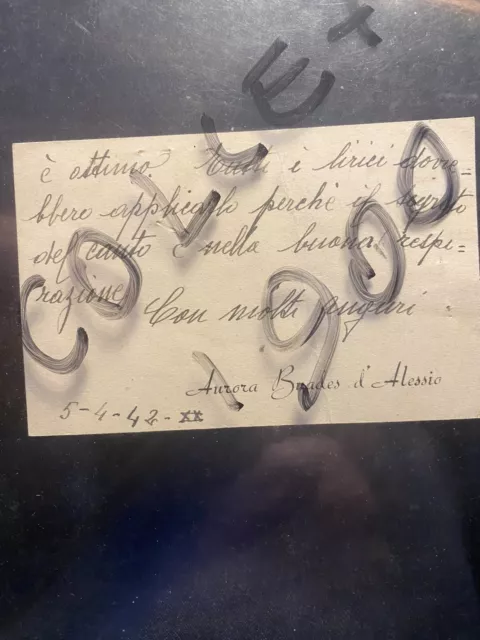 è ottimo. Tutti i lirici dovre=
bbero applicarlo perchè il segreto
del canto è nella buona respi=
razione. Con molti auguri
Aurora Buades d'Alessio
5-4-42-XX
COLLET
1900